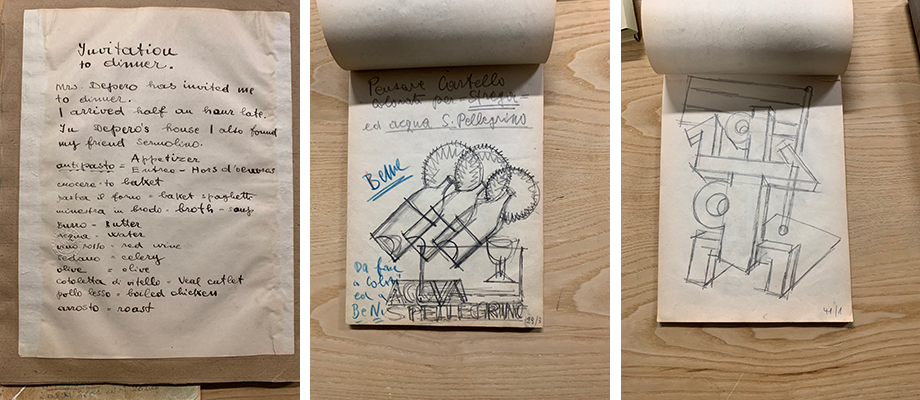 Invitation
to dinner.
Mrs. Depero has invited me
to dinner.
I arrived half an hour late.
In Depero's house I also found
my friend Sermolino.
antipasto = Appetizer
Entree - Hors d'oeuvres
cuocere - to baket
pasta il forno = baket spaghetti
minestra in brodo - broth - soup
Burro - Butter
acqua - water
vino rosso = red wine
sedano = celery
olive = olive
cotoletta di vitello = veal cutlet
pollo lesso = boiled chicken
arrosto = roast
Pensare Cartello
colorati per Strega =
ed acqua S. Pellegrino
Bene
Da fare
a colori
ed a
BeNe
ACQUA
S. PELLEGRINO
41/1